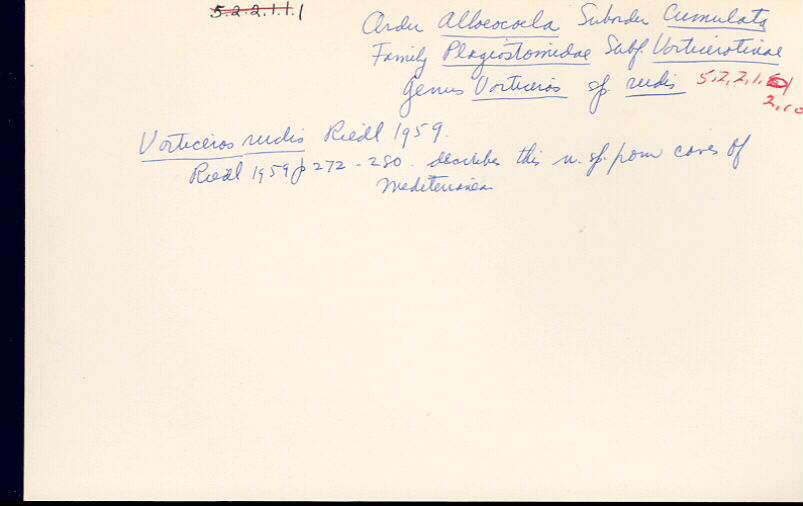 5.2.2.1.1.1
Order Alloeocoela Suborder Cumulata
Family Plagiostomidae Subf. Vorticerotinae
Genus Vorticeros sp. rudis 5.2.2.1.
2.10
Vorticeros rudis Riedl 1959.
Riedl 1959 p 272-280. describes this n. sp. from caves of
Mediterranean